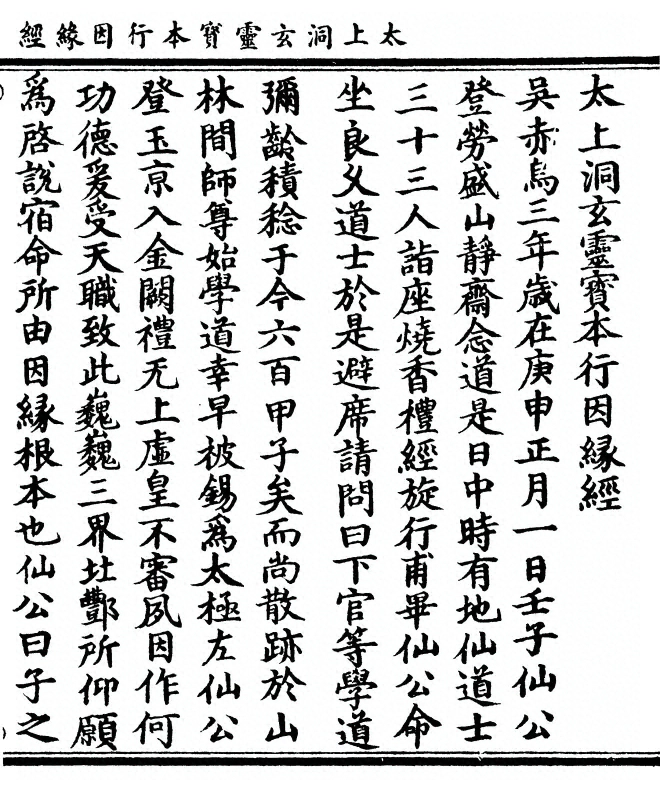 太上洞玄靈寶本行因緣經
太上洞玄靈寶本行因縁經
吳赤烏三年歲在庚申正月一日壬子仙公
登勞盛山靜齋念道是日中時有地仙道士
三十三人詣座燒香禮經旋行甫畢仙公命
坐良乆道士於是避席請問曰下官等學道
彌齡積稔于今六百甲子矣而尚散跡於山
林間師尊始學道幸早被錫爲太極左仙公
登玉京入金闕禮无上虛皇不審夙因作何
功德爰受天職致此巍巍三界北酆所仰願
爲啓說宿命所由因縁根本也仙公曰子之